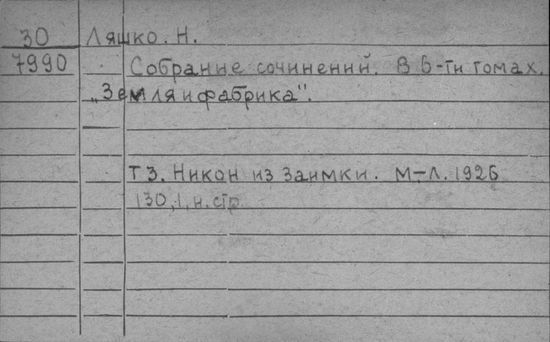 30 Ляшко. Н.
7990 Собрание сочинений. В 6-ти томах.
„Земля и фабрика".
Т 3. Никон из Заимки. М-Л. 1926
130, 1, н. стр.